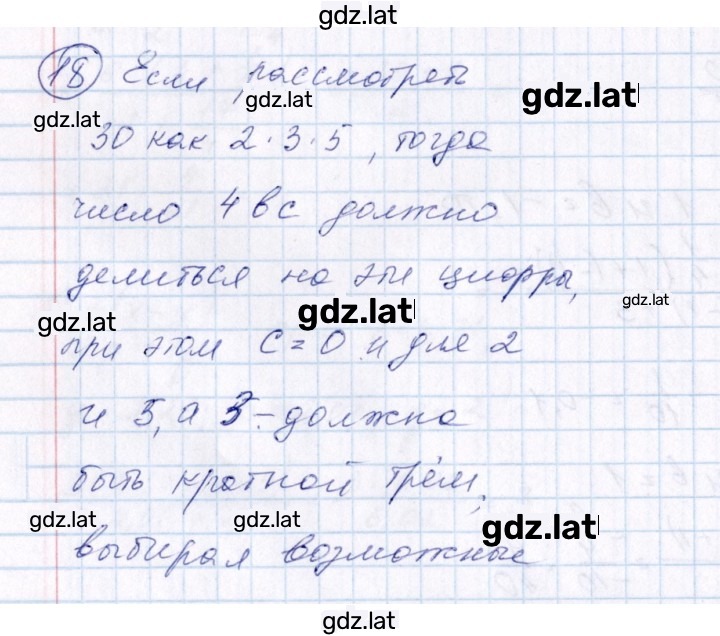 gdz.lat
18 Если рассмотреть
gdz.lat
gdz.lat
gdz.lat
30 как 2·3·5, тогда
число 4вс должно
делиться на эти цифры,
gdz.lat
gdz.lat
gdz.lat
при этом С=0 и для 2
и 5, а 3 - должно
быть кратной трём,
gdz.lat
gdz.lat
gdz.lat
выбирая возможные
gdz.lat